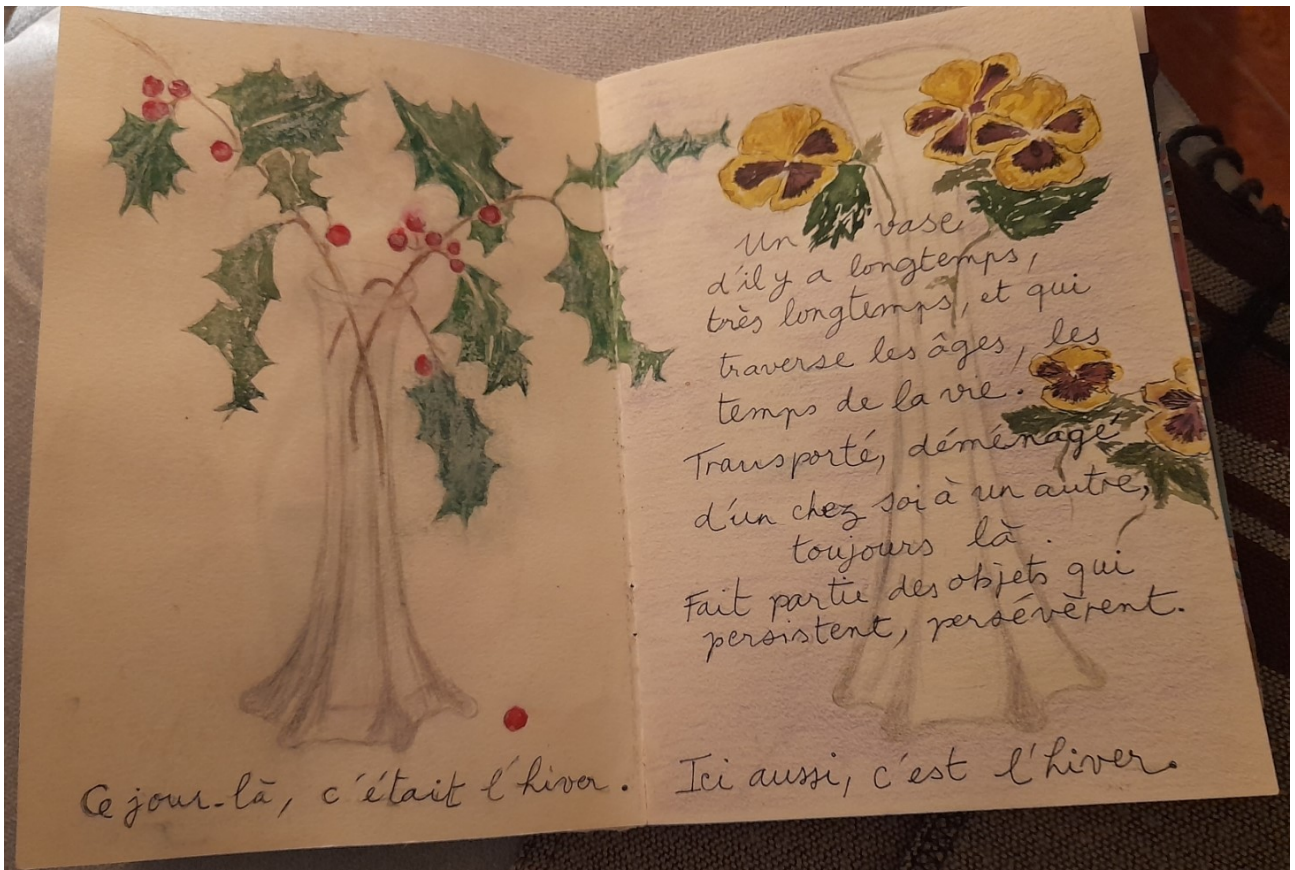 Ce jour-là, c'était l'hiver.
Un vase
d'il y a longtemps,
très longtemps, et qui
traverse les âges, les
temps de la vie.
Transporté, déménagé
d'un chez soi à un autre,
toujours là.
Fait partie des objets qui
persistent, persévèrent.
Ici aussi, c'est l'hiver.